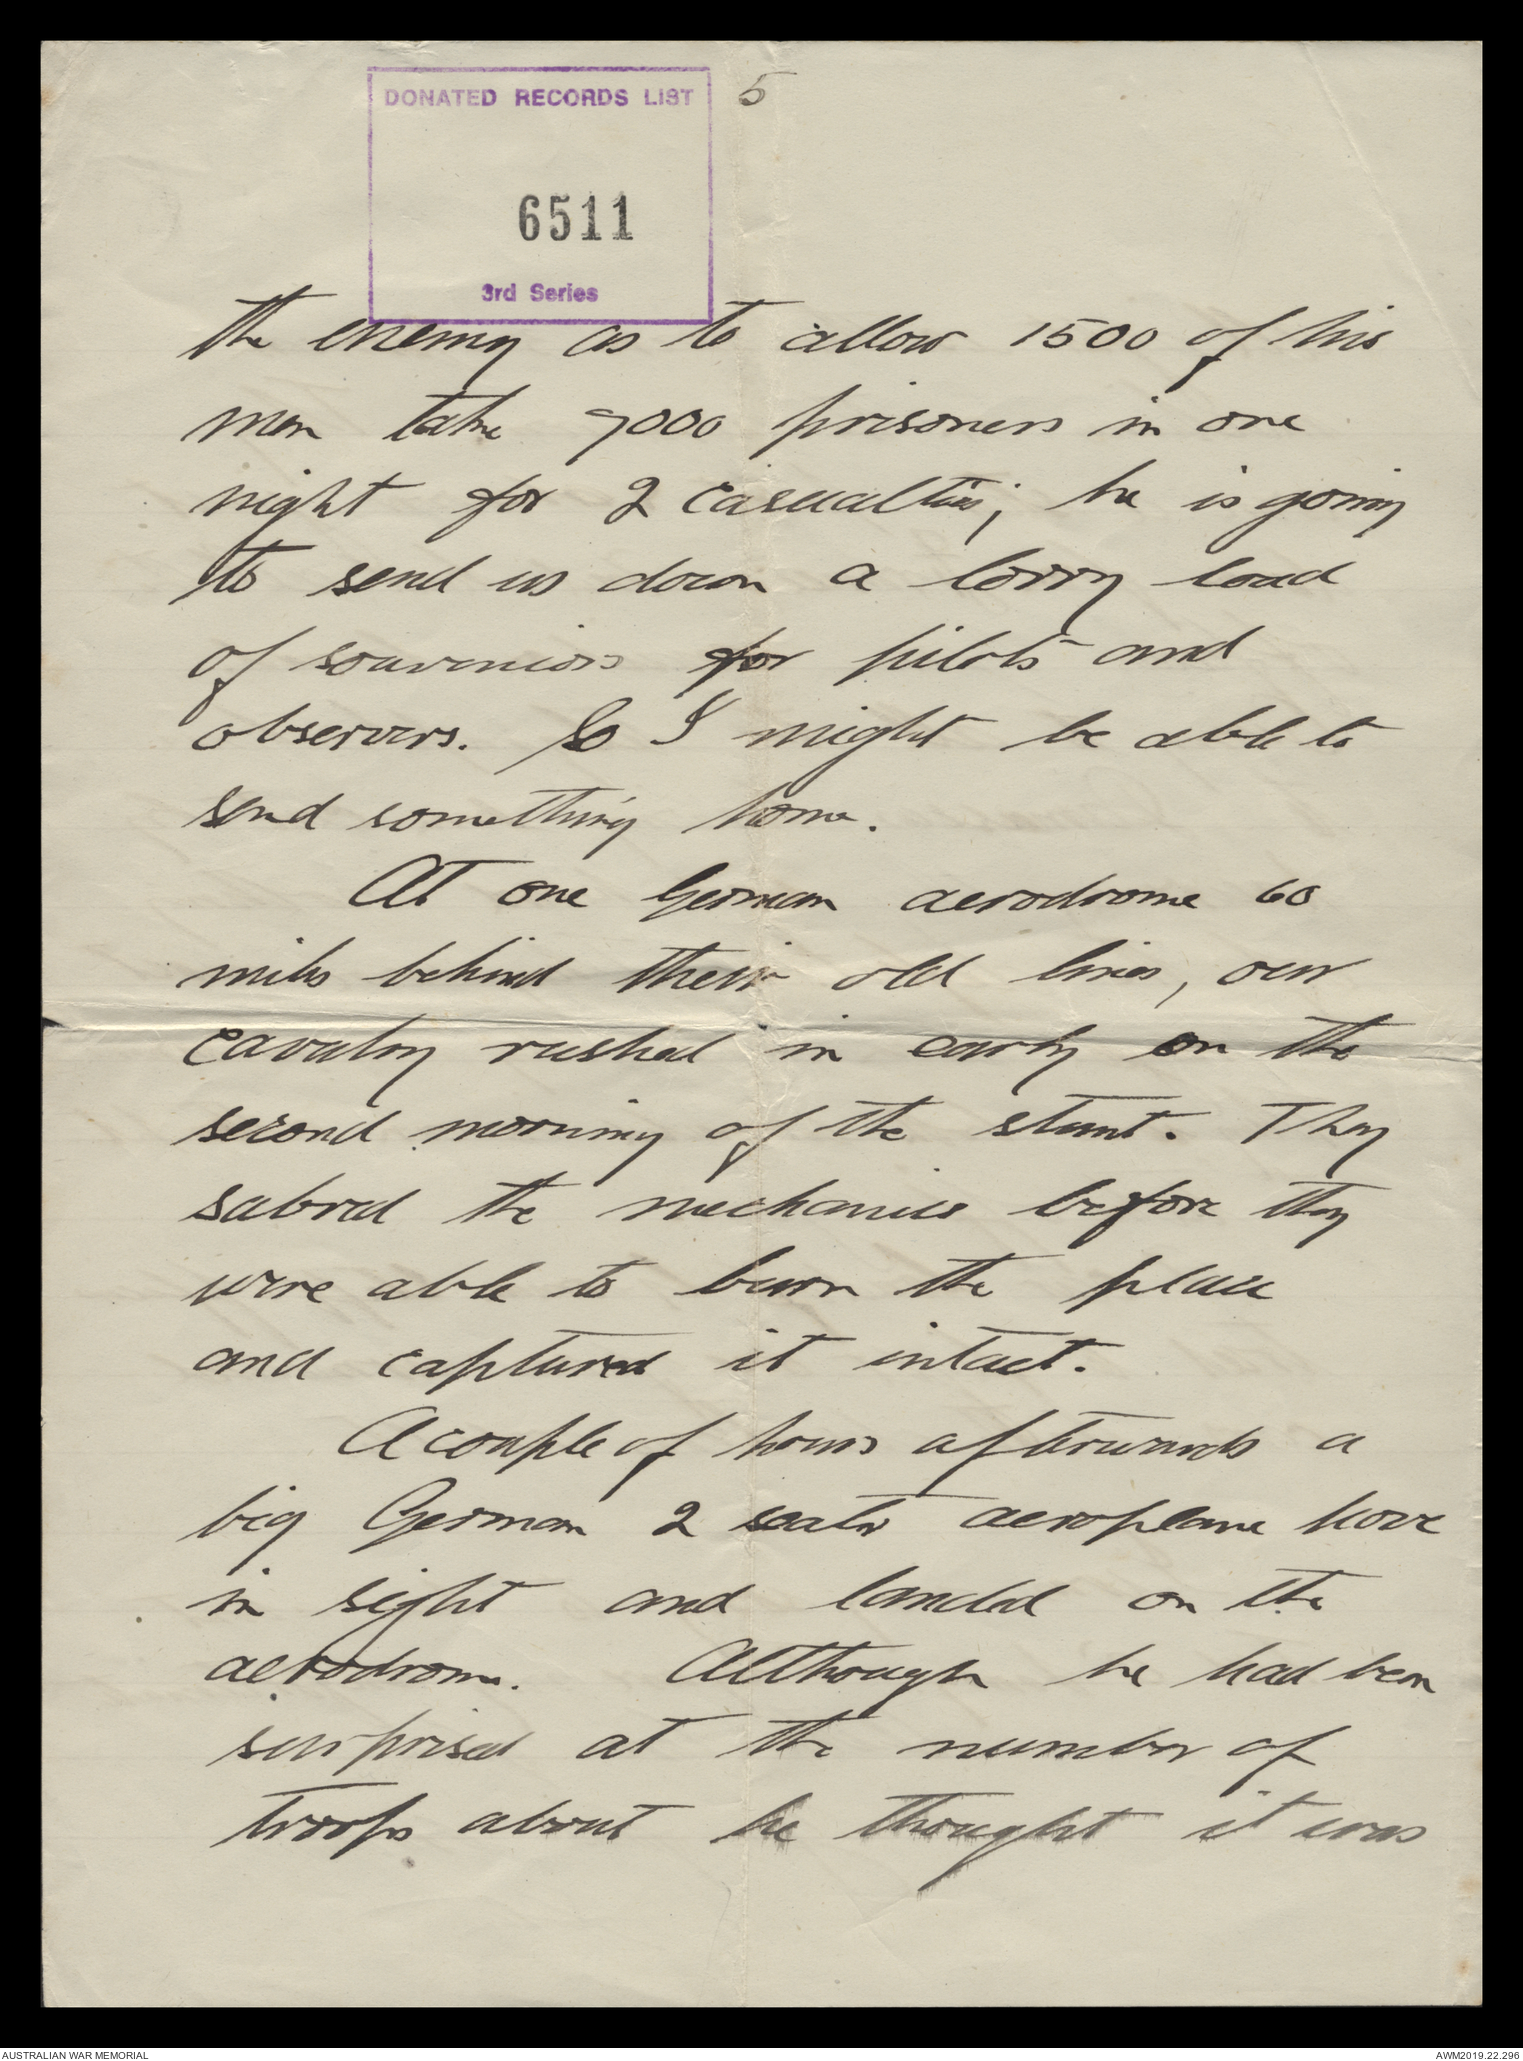 DONATED RECORDS LIST
6511
3rd Series
5
the enemy as to allow 1500 of his
men take 7000 prisoners in one
night for 2 casualties; he is going
to send us down a lorry load
of souvenirs for pilots and
observers. So I might be able to
send something home.
At one German aerodrome 60
miles behind their old lines, our
cavalry rushed in early on the
second morning of the stunt. They
sabred the mechanics before they
were able to burn the place
and captured it intact.
A couple of hours afterwards a
big German 2 seater aeroplane hove
in sight and landed on the
aerodrome. Although he had been
surprised at the number of
troops about he thought it was
AUSTRALIAN WAR MEMORIAL
AWM2019.22.296